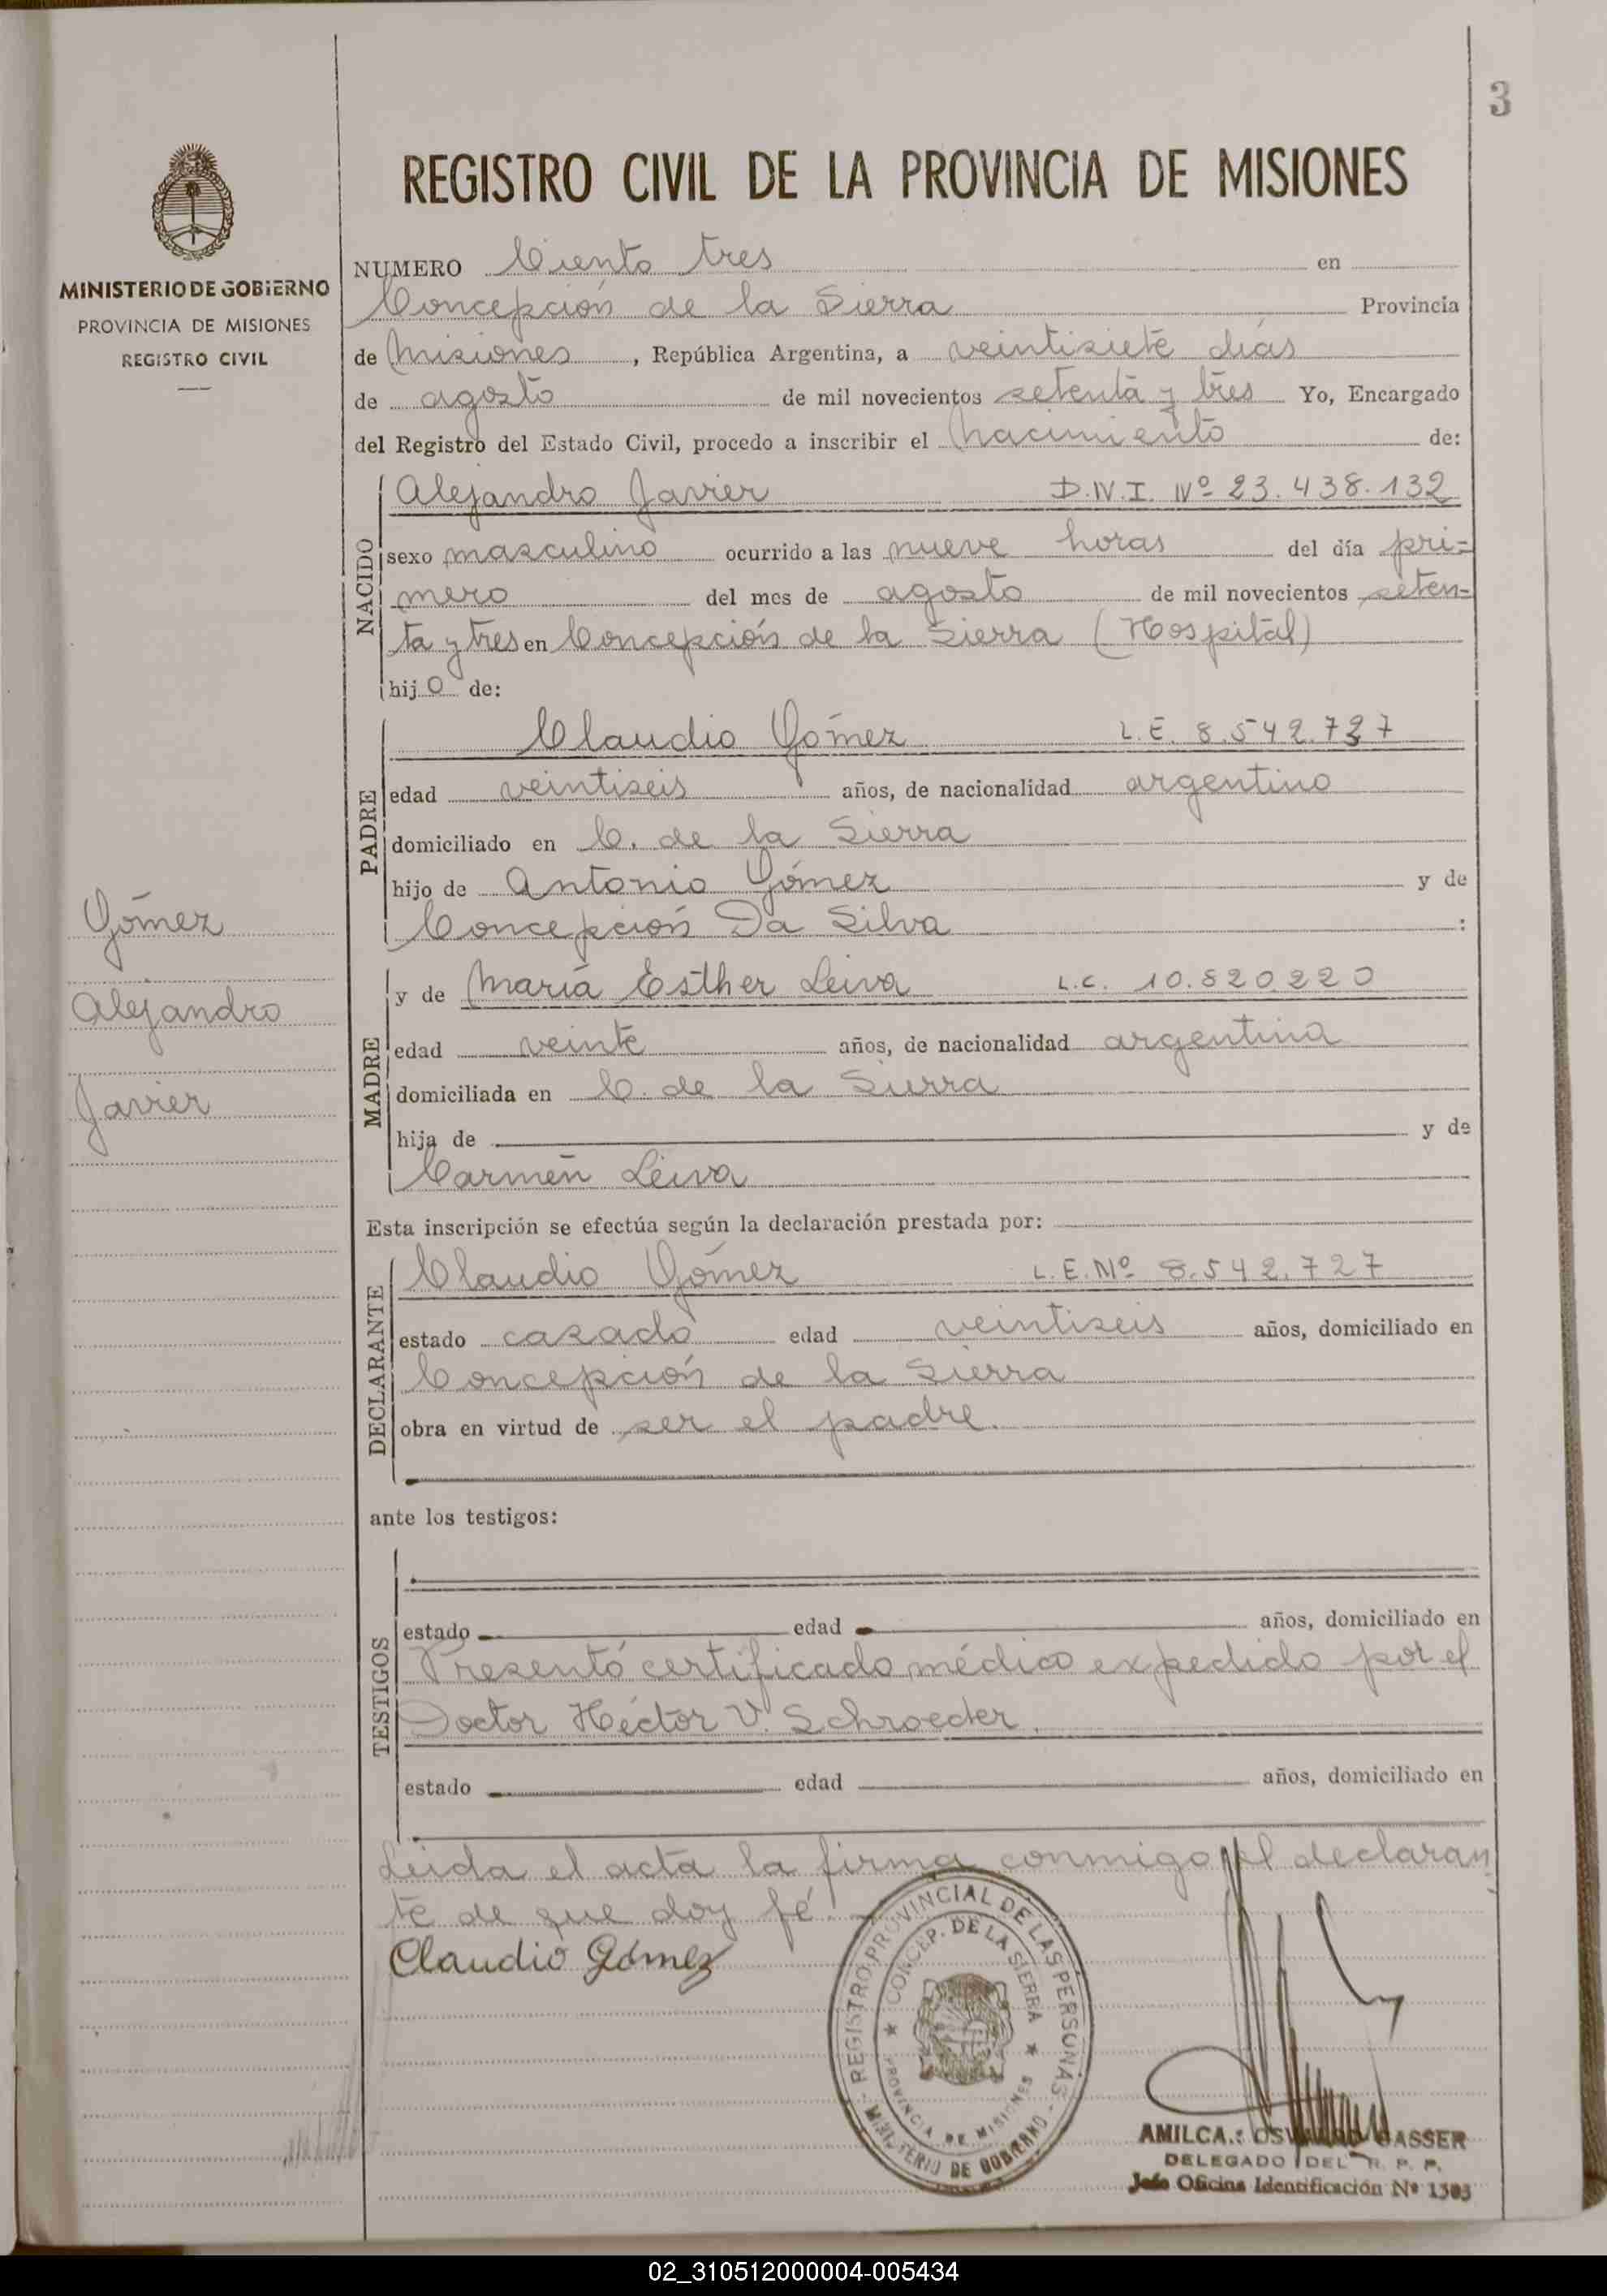 3
REGISTRO CIVIL DE LA PROVINCIA DE MISIONES
MINISTERIO DE GOBIERNO
PROVINCIA DE MISIONES
REGISTRO CIVIL
NUMERO Ciento tres en
Concepción de la Sierra Provincia
de Misiones, República Argentina, a veintisiete días
de agosto de mil novecientos setenta y tres Yo, Encargado
del Registro del Estado Civil, procedo a inscribir el nacimiento de:
NACIDO
Alejandro Javier D.N.I. Nº 23.438.132
sexo masculino ocurrido a las nueve horas del día pri=
mero del mes de agosto de mil novecientos seten=
ta y tres en Concepción de la Sierra (Hospital)
hijo de:
PADRE
Claudio Gómez L.E. 8.542.727
edad veintiseis años, de nacionalidad argentino
domiciliado en C. de la Sierra
hijo de Antonio Gómez y de
Concepción Da Silva :
Gómez
Alejandro
Javier
MADRE
y de María Esther Leiva L.C. 10.820.220
edad veinte años, de nacionalidad argentina
domiciliada en C. de la Sierra
hija de y de
Carmen Leiva
Esta inscripción se efectúa según la declaración prestada por:
DECLARANTE
Claudio Gómez L.E.Nº 8.542.727
estado casado edad veintiseis años, domiciliado en
Concepción de la Sierra
obra en virtud de ser el padre.
ante los testigos:
TESTIGOS
estado edad años, domiciliado en
Presentó certificado médico expedido por el
Doctor Héctor V. Schroeder.
estado edad años, domiciliado en
Leida el acta la firma conmigo el declaran
te de que doy fé.
Claudio Gómez
REGISTRO PROVINCIAL DE LAS PERSONAS
CONCEP. DE LA SIERRA
PROVINCIA DE MISIONES
MINISTERIO DE GOBIERNO
GASSER
DELEGADO DEL R. P. P.
Jefe Oficina Identificación Nº 1303
02_310512000004-005434